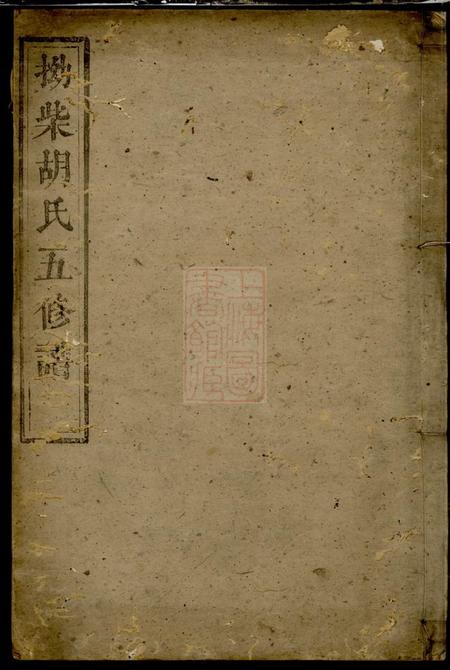 拗柴胡氏五修譜
上海圖書館藏